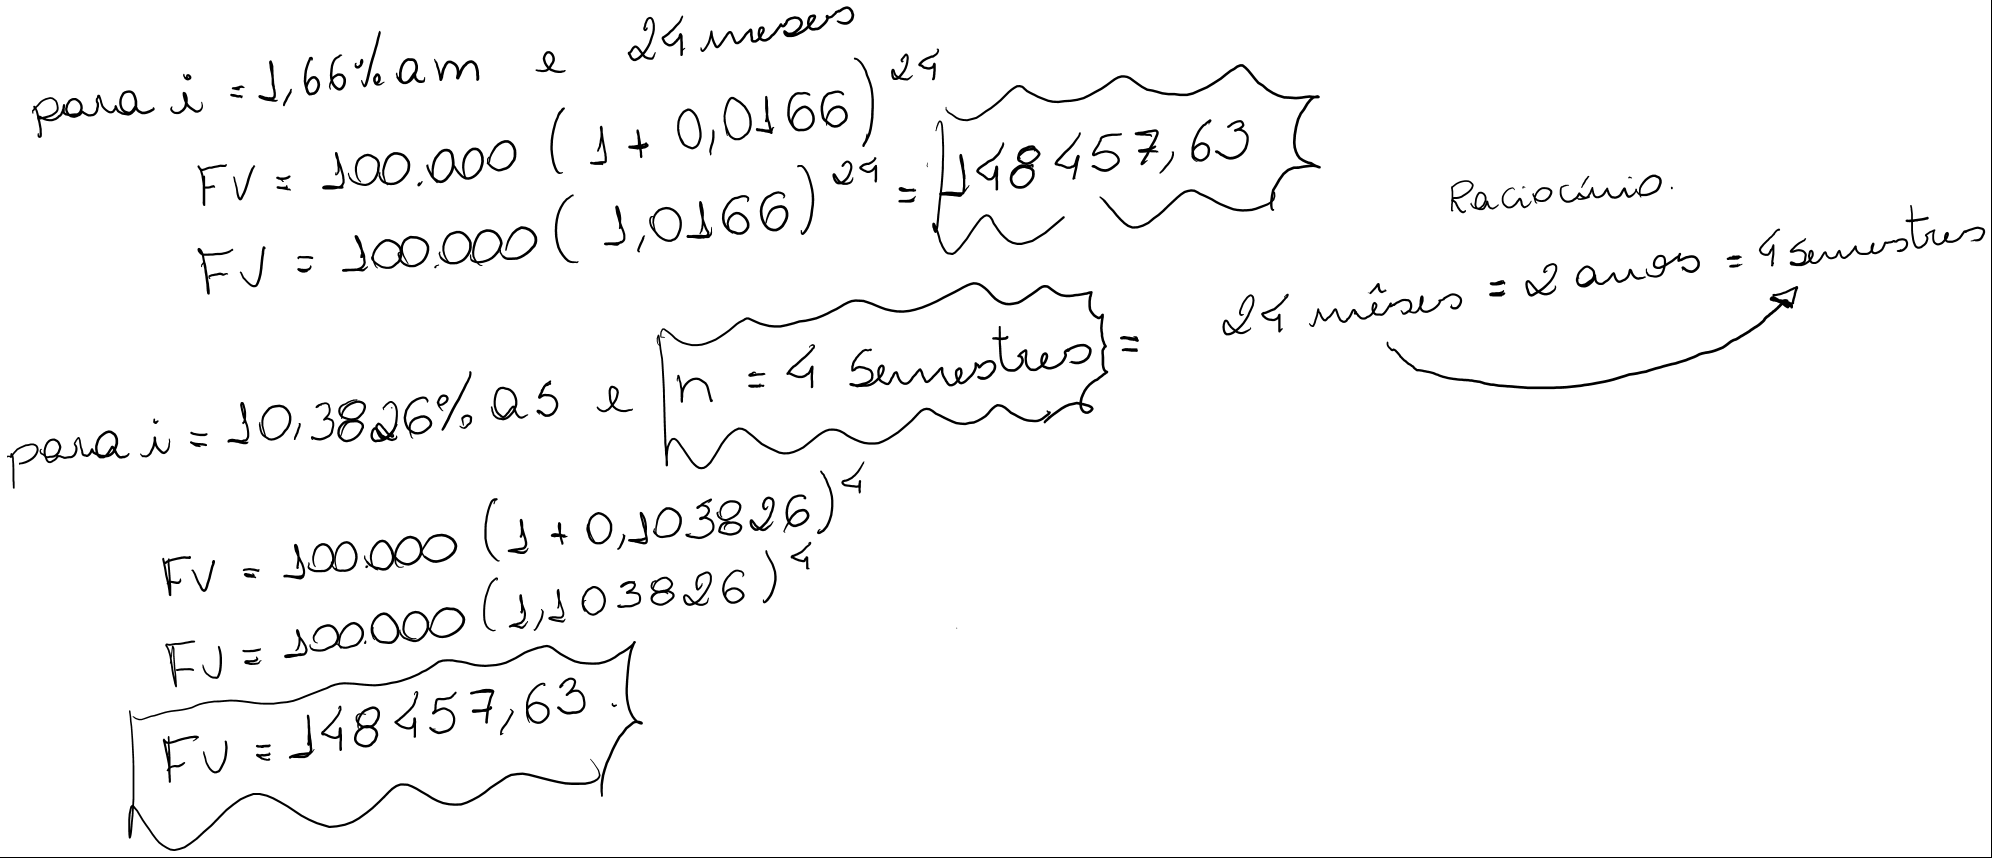 para i = 1,66% am e 24 meses
FV = 100.000 (1 + 0,0166)^24
FV = 100.000 (1,0166)^24 = 148457,63
Raciocínio.
24 mêses = 2 anos = 4 semestres
para i = 10,3826% as e n = 4 semestres =
FV = 100.000 (1 + 0,103826)^4
FV = 100.000 (1,103826)^4
FV = 148457,63.